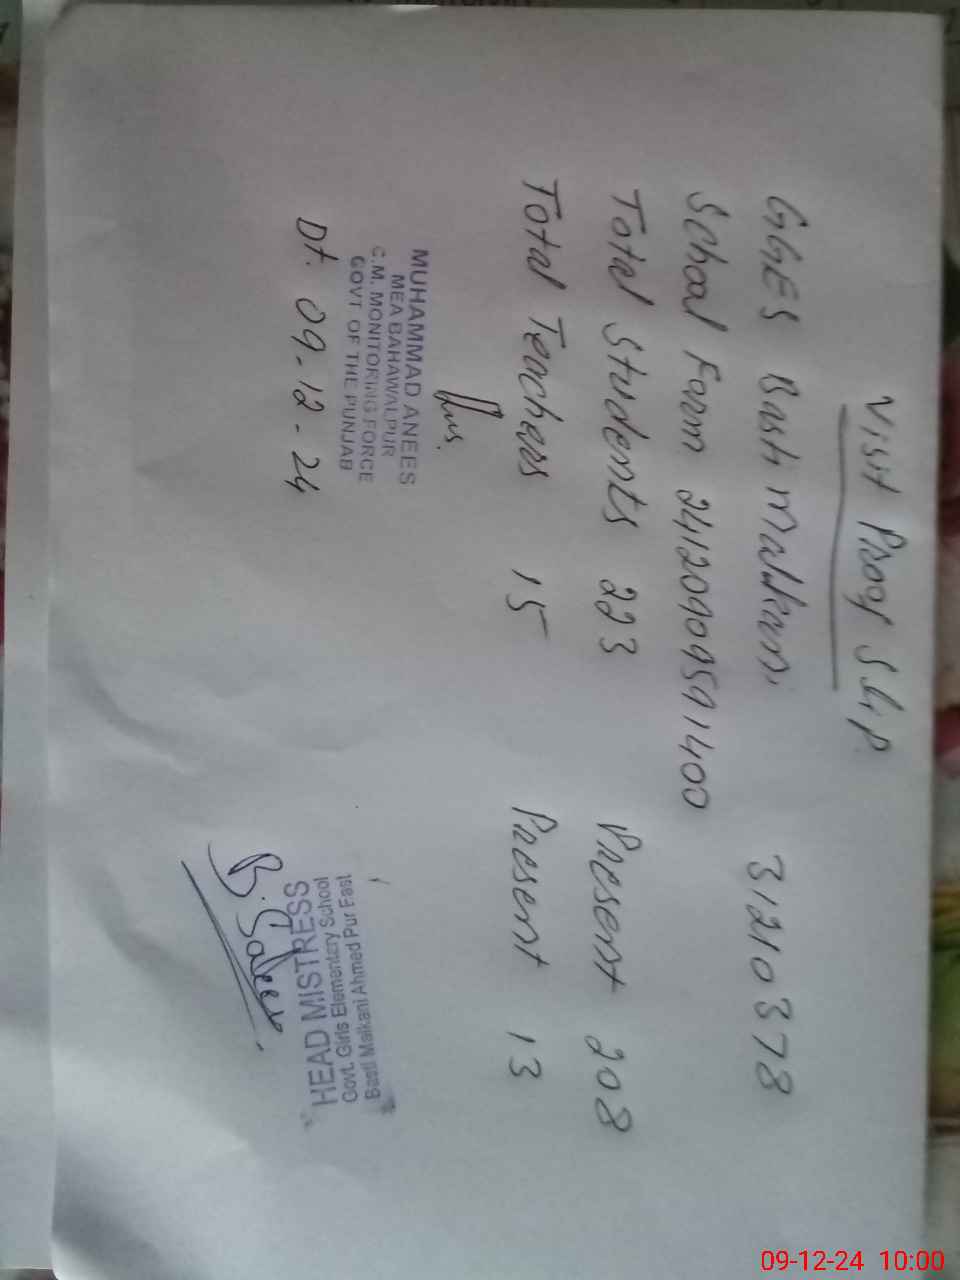 Visit Proof Slip
GGES Basti Malkani 31210378
School Farm 24120909591400
Total Students 223 Present 208
Total Teachers 15 Present 13
MUHAMMAD ANEES
MEA BAHAWALPUR
C.M. MONITORING FORCE
GOVT OF THE PUNJAB
Dt. 09-12-24
HEAD MISTRESS
Govt. Girls Elementary School
Basti Malkani Ahmed Pur East
09-12-24 10:00